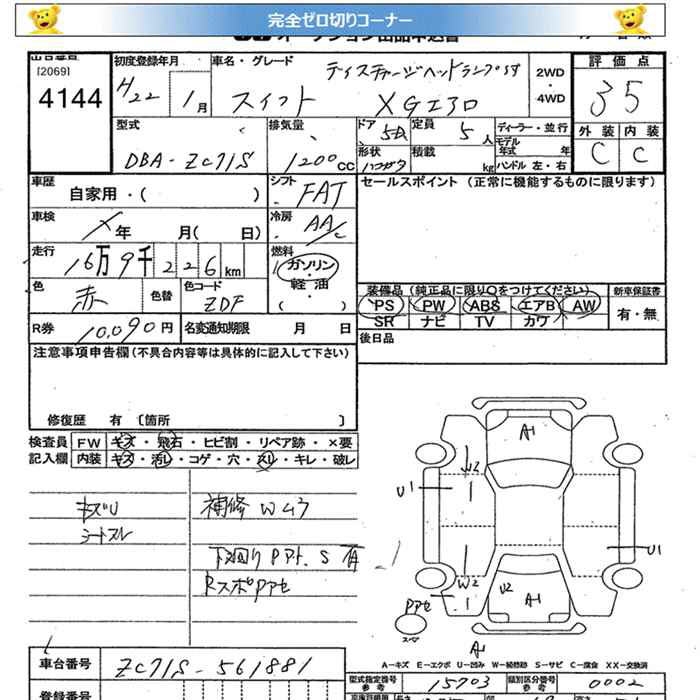 完全ゼロ切りコーナー
オークション出品申込書
出品番号
[2069]
4144
初度登録年月
H22 1月
車名・グレード
ディスチャージヘッドランプ付
スイフト XGエアロ
2WD
・
4WD
評価点
35
外装 内装
C C
型式
DBA-ZC71S
排気量
1200cc
ドア 5
形状 ハッチバック
定員 5人
積載 kg
ディーラー・並行
モデル年式 年
ハンドル 左・右
車歴
自家用・( )
シフト
FAT
セールスポイント (正常に機能するものに限ります)
車検
年 月( 日)
冷房
AA/C
走行
16万9千226km
燃料
ガソリン
・
軽油
( )
色
赤
色替
色コード
ZDF
装備品 (純正品に限り○をつけてください)
新車保証書
PS PW ABS エアB AW
SR ナビ TV カワ
有・無
R券 10,090円
名変通知期限 月 日
後日品
注意事項申告欄 (不具合内容等は具体的に記入して下さい)
修復歴 有 〔箇所 〕
検査員
記入欄
FW キズ・飛石・ヒビ割・リペア跡・×要
内装 キズ・汚レ・コゲ・穴・スリ・キレ・破レ
キズU
シートスレ
補修Wムラ
下廻りPアト.S有
RスポPアセ
A1
W2
U1
U1
W2
U2
A1
Pアセ
スペア
A1
A-キズ E-エクボ U-凹み W-補修跡 S-サビ C-腐食 XX-交換済
車台番号
ZC71S-561881
型式指定番号
参考
15703
類別区分番号
参考
0002
登録番号